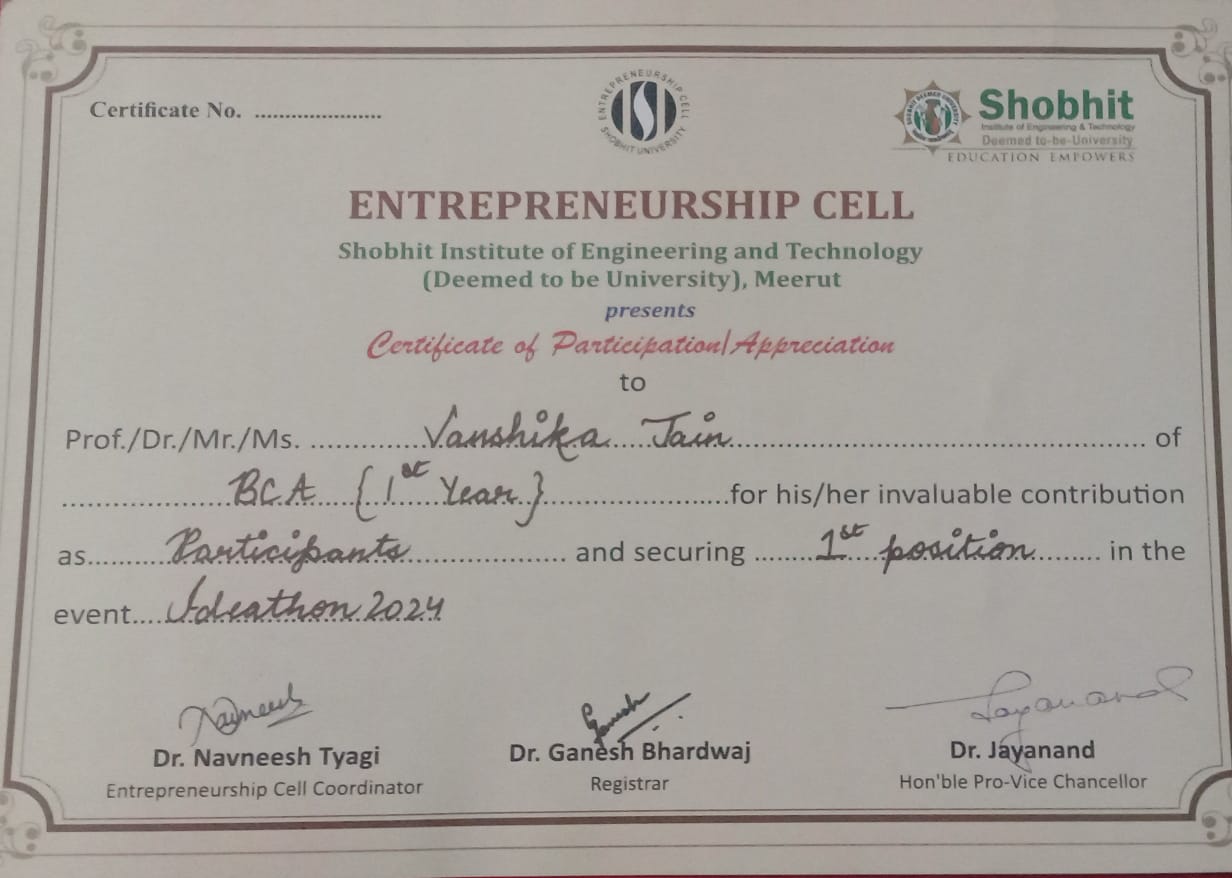 Certificate No. .....................
ENTREPRENEURSHIP CELL
SHOBHIT UNIVERSITY
Shobhit
Institute of Engineering & Technology
Deemed to-be-University
EDUCATION EMPOWERS
ENTREPRENEURSHIP CELL
Shobhit Institute of Engineering and Technology
(Deemed to be University), Meerut
presents
Certificate of Participation/Appreciation
to
Prof./Dr./Mr./Ms. Vanshika Jain of
BCA {1st Year} for his/her invaluable contribution
as Participants and securing 1st position in the
event Ideathon 2024
Navneesh Ganesh Jayanand
Dr. Navneesh Tyagi Dr. Ganesh Bhardwaj Dr. Jayanand
Entrepreneurship Cell Coordinator Registrar Hon'ble Pro-Vice Chancellor